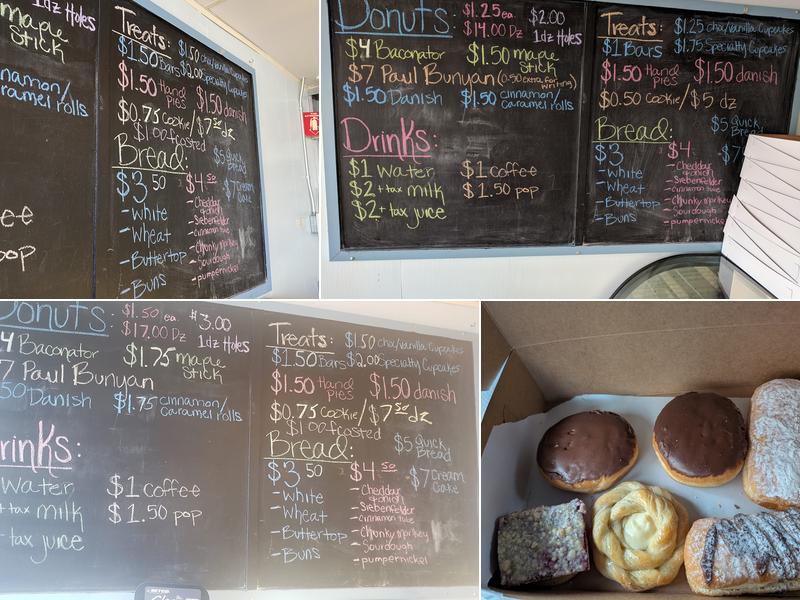 1dz Holes
maple
stick
cinnamon/
caramel rolls
Treats: $1.50 cho/Vanilla Cupcakes
$1.50 Bars $2.00 Specialty Cupcakes
$1.50 Hand Pies $1.50 danish
$0.75 Cookie/$7.50 dz
$1.00 frosted
Bread: $5 Quick Bread
$3.50 $4.50 $7 Cream Cake
- White
- Wheat
- Buttertop
- Buns
- Cheddar & onion
- Siebenfelder
- cinnamon tube
- Chunky monkey
- Sourdough
- pumpernickel
pop
Donuts: $1.25 ea. $2.00
$14.00 Dz 1dz Holes
$4 Baconator $1.50 maple stick
$7 Paul Bunyan (0.50 extra for writing)
$1.50 Danish $1.50 cinnamon/
caramel rolls
Drinks:
$1 Water $1 coffee
$2 + tax milk $1.50 pop
$2 + tax juice
Treats: $1.25 cho/Vanilla Cupcakes
$1 Bars $1.75 Specialty Cupcakes
$1.50 Hand Pies $1.50 danish
$0.50 Cookie/$5 dz
Bread: $5 Quick Bread
$3 $4 $7
- White
- Wheat
- Buttertop
- Buns
- Cheddar & onion
- Siebenfelder
- cinnamon tube
- Chunky monkey
- Sourdough
- pumpernickel
Donuts: $1.50 ea. $3.00
$17.00 Dz 1dz Holes
4 Baconator $1.75 maple stick
7 Paul Bunyan
50 Danish $1.75 cinnamon/
caramel rolls
rinks:
Water $1 coffee
+ tax milk $1.50 pop
+ tax juice
Treats: $1.50 cho/Vanilla Cupcakes
$1.50 Bars $2.00 Specialty Cupcakes
$1.50 Hand Pies $1.50 danish
$0.75 Cookie/$7.50 dz
$1.00 frosted
Bread: $5 Quick Bread
$3.50 $4.50 $7 Cream Cake
- White
- Wheat
- Buttertop
- Buns
- Cheddar & onion
- Siebenfelder
- cinnamon tube
- Chunky monkey
- Sourdough
- pumpernickel